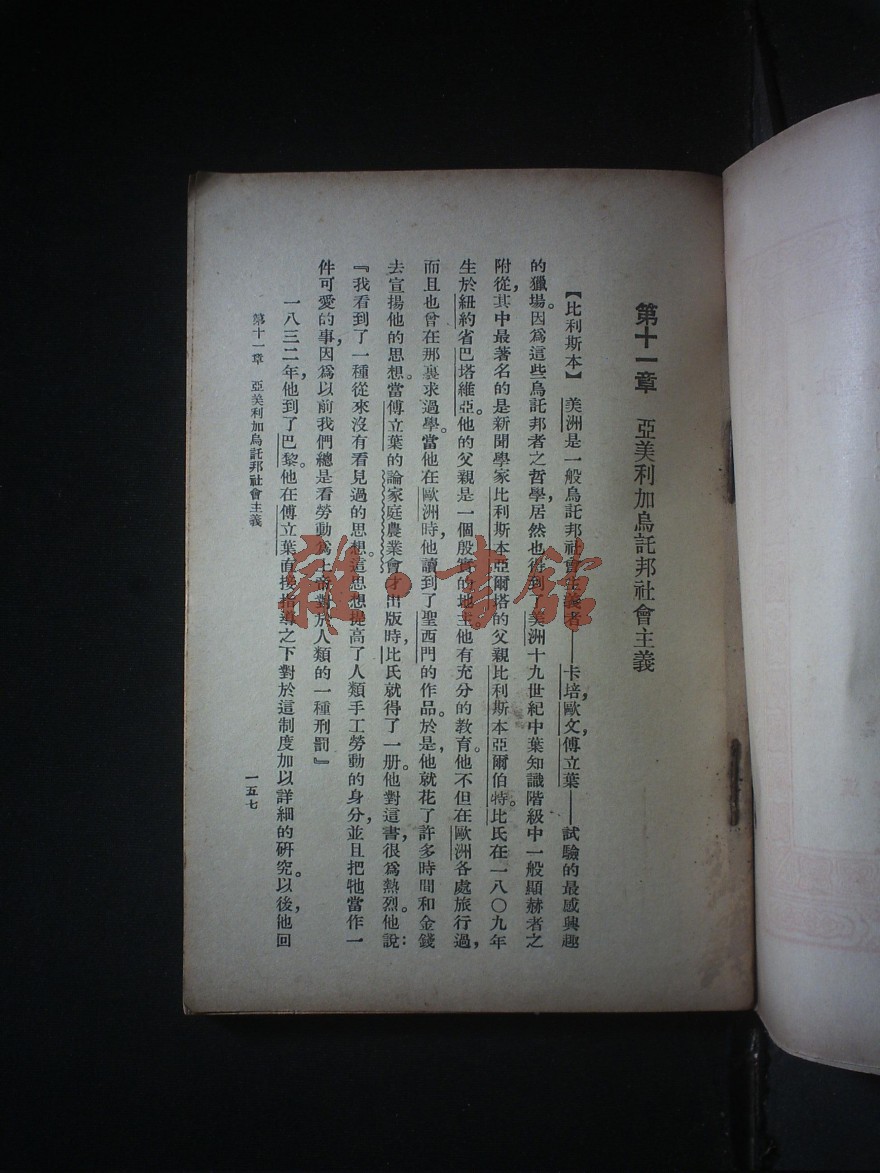 第十一章　亞美利加烏託邦社會主義
【比利斯本】　美洲是一般烏託邦社會主義者——卡培，歐文，傅立葉——試驗的最感興趣
的獵場。因爲這些烏託邦者之哲學，居然也得到了美洲十九世紀中葉知識階級中一般顯赫者之
附從，其中最著名的是新聞學家比利斯本亞爾塔的父親比利斯本亞爾伯特。比氏在一八〇九年
生於紐約省巴塔維亞。他的父親是一個殷實的地主。他有充分的教育。他不但在歐洲各處旅行過，
而且也曾在那裏求過學。當他在歐洲時，他讀到了聖西門的作品。於是，他就花了許多時間和金錢
去宣揚他的思想。當傅立葉的論家庭農業會才出版時，比氏就得了一册。他對這書，很爲熱烈。他說：
『我看到了一種從來沒有看見過的思想。這思想提高了人類手工勞動的身分，並且把牠當作一
件可愛的事，因爲以前我們總是看勞動爲上帝對於人類的一種刑罰』
一八三二年，他到了巴黎。他在傅立葉直接指導之下對於這制度加以詳細的研究。以後，他回
第十一章　亞美利加烏託邦社會主義
一五七
雜·書館